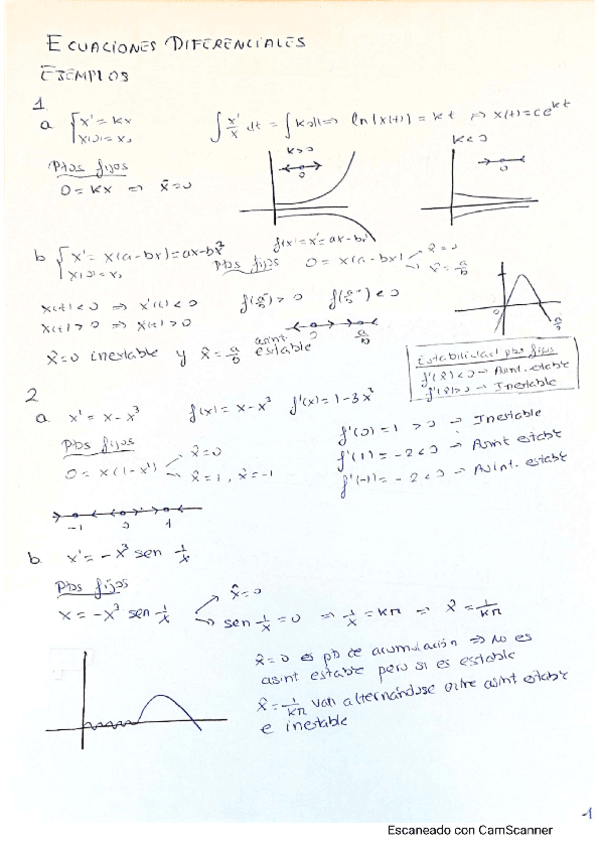 ECUACIONES DIFERENCIALES
EJEMPLOS
1
a { x' = kx
x(0) = x₀
∫ x'/x dt = ∫ k dt ⇒ ln(x(t)) = kt ⇒ x(t) = ce^kt
Ptos fijos
0 = kx ⇒ x̂ = 0
k > 0
0
k < 0
0
b { x' = x(a - bx) = ax - bx²
x(0) = x₀
f(x) = x' = ax - bx²
Ptos fijos 0 = x(a - bx)
x̂ = 0
x̂ = a/b
x(t) < 0 ⇒ x'(t) < 0
x(t) > 0 ⇒ x(t) > 0
f(a/b⁻) > 0 f(a/b⁺) < 0
0 a/b
x̂ = 0 inestable y x̂ = a/b asint. estable
0 a/b
Estabilidad ptos fijos
f'(x̂) < 0 → Asint. estable
f'(x̂) > 0 → Inestable
2
a x' = x - x³ f(x) = x - x³ f'(x) = 1 - 3x²
Ptos fijos
0 = x(1 - x²)
x̂ = 0
x̂ = 1, x̂ = -1
f'(0) = 1 > 0 → Inestable
f'(1) = -2 < 0 → Asint estable
f'(-1) = -2 < 0 → Asint. estable
-1 0 1
b x' = -x³ sen 1/x
Ptos fijos
x = -x³ sen 1/x
x̂ = 0
sen 1/x = 0 ⇒ 1/x = kπ ⇒ x̂ = 1/kπ
x̂ = 0 es pto de acumulación ⇒ No es
asint estable pero si es estable
x̂ = 1/kπ van alternándose entre asint estable
e inestable
-1
Escaneado con CamScanner